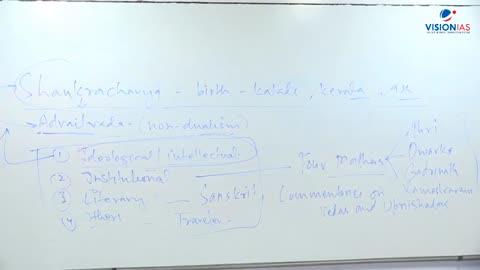 VISIONIAS
Shankracharya - birth - Kaladi, Kerala,
→ Advaitveda - (non-dualism)
(1) Ideological / intellectual
(2) Institutional — Four Mathas
(3) Literary — Sanskrit
(4) Traveler.
Dwarka
Badrinath
Rameshwaram
Commentaries on
Vedas and Upnishadas